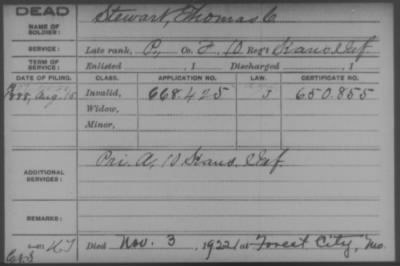 DEAD
NAME OF SOLDIER: Stewart, Thomas C
SERVICE: Late rank, P, Co. F, 10 Reg't Kans. Inf.
TERM OF SERVICE: Enlisted , 1 Discharged , 1
DATE OF FILING. CLASS. APPLICATION NO. LAW. CERTIFICATE NO.
1888, Aug. 15 Invalid, 668.425 J 650.855
Widow,
Minor,
ADDITIONAL SERVICES: Pri. A, 10 Kans. Inf.
REMARKS:
Died Nov. 3, 1922 at Forest City, Mo.